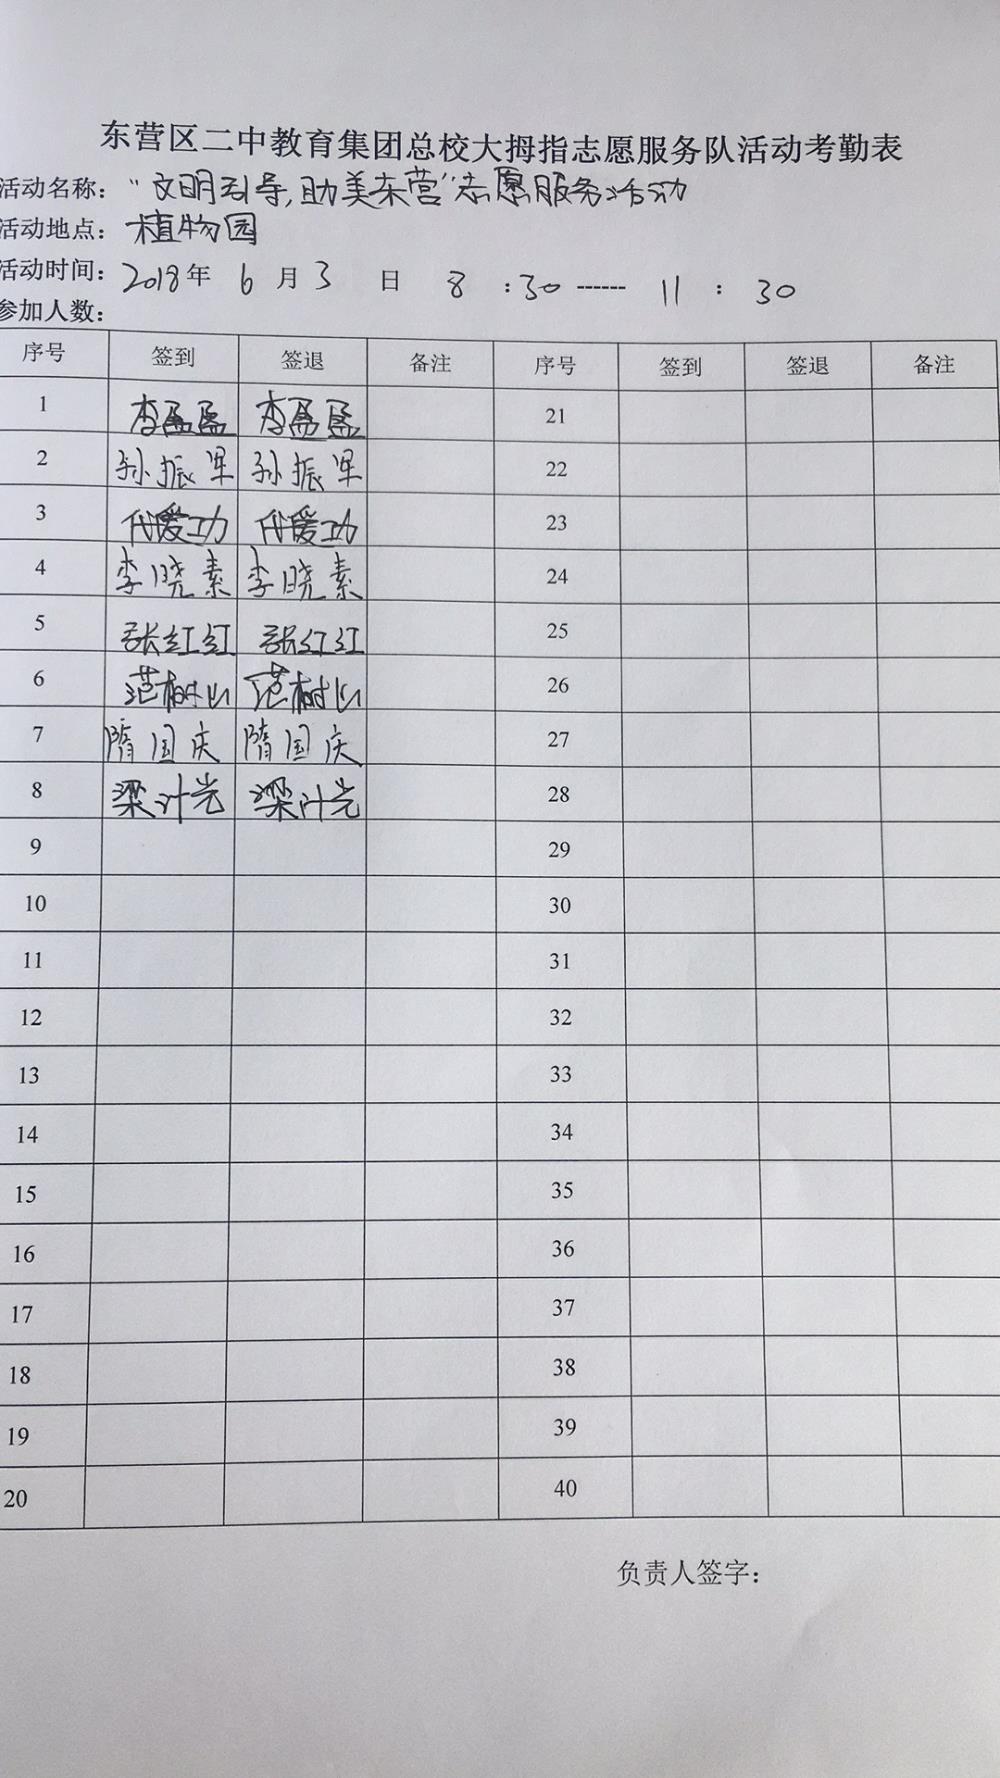 东营区二中教育集团总校大拇指志愿服务队活动考勤表
活动名称：“文明引导,助美东营”志愿服务活动
活动地点：植物园
活动时间：2018年 6 月 3 日 8 :30 ------ 11 : 30
参加人数：
序号 签到 签退 备注 序号 签到 签退 备注
1 李盈盈 李盈盈 21
2 孙振军 孙振军 22
3 代爱功 代爱功 23
4 李晓素 李晓素 24
5 张红红 张红红 25
6 范树山 范树山 26
7 隋国庆 隋国庆 27
8 梁计光 梁计光 28
9 29
10 30
11 31
12 32
13 33
14 34
15 35
16 36
17 37
18 38
19 39
20 40
负责人签字：